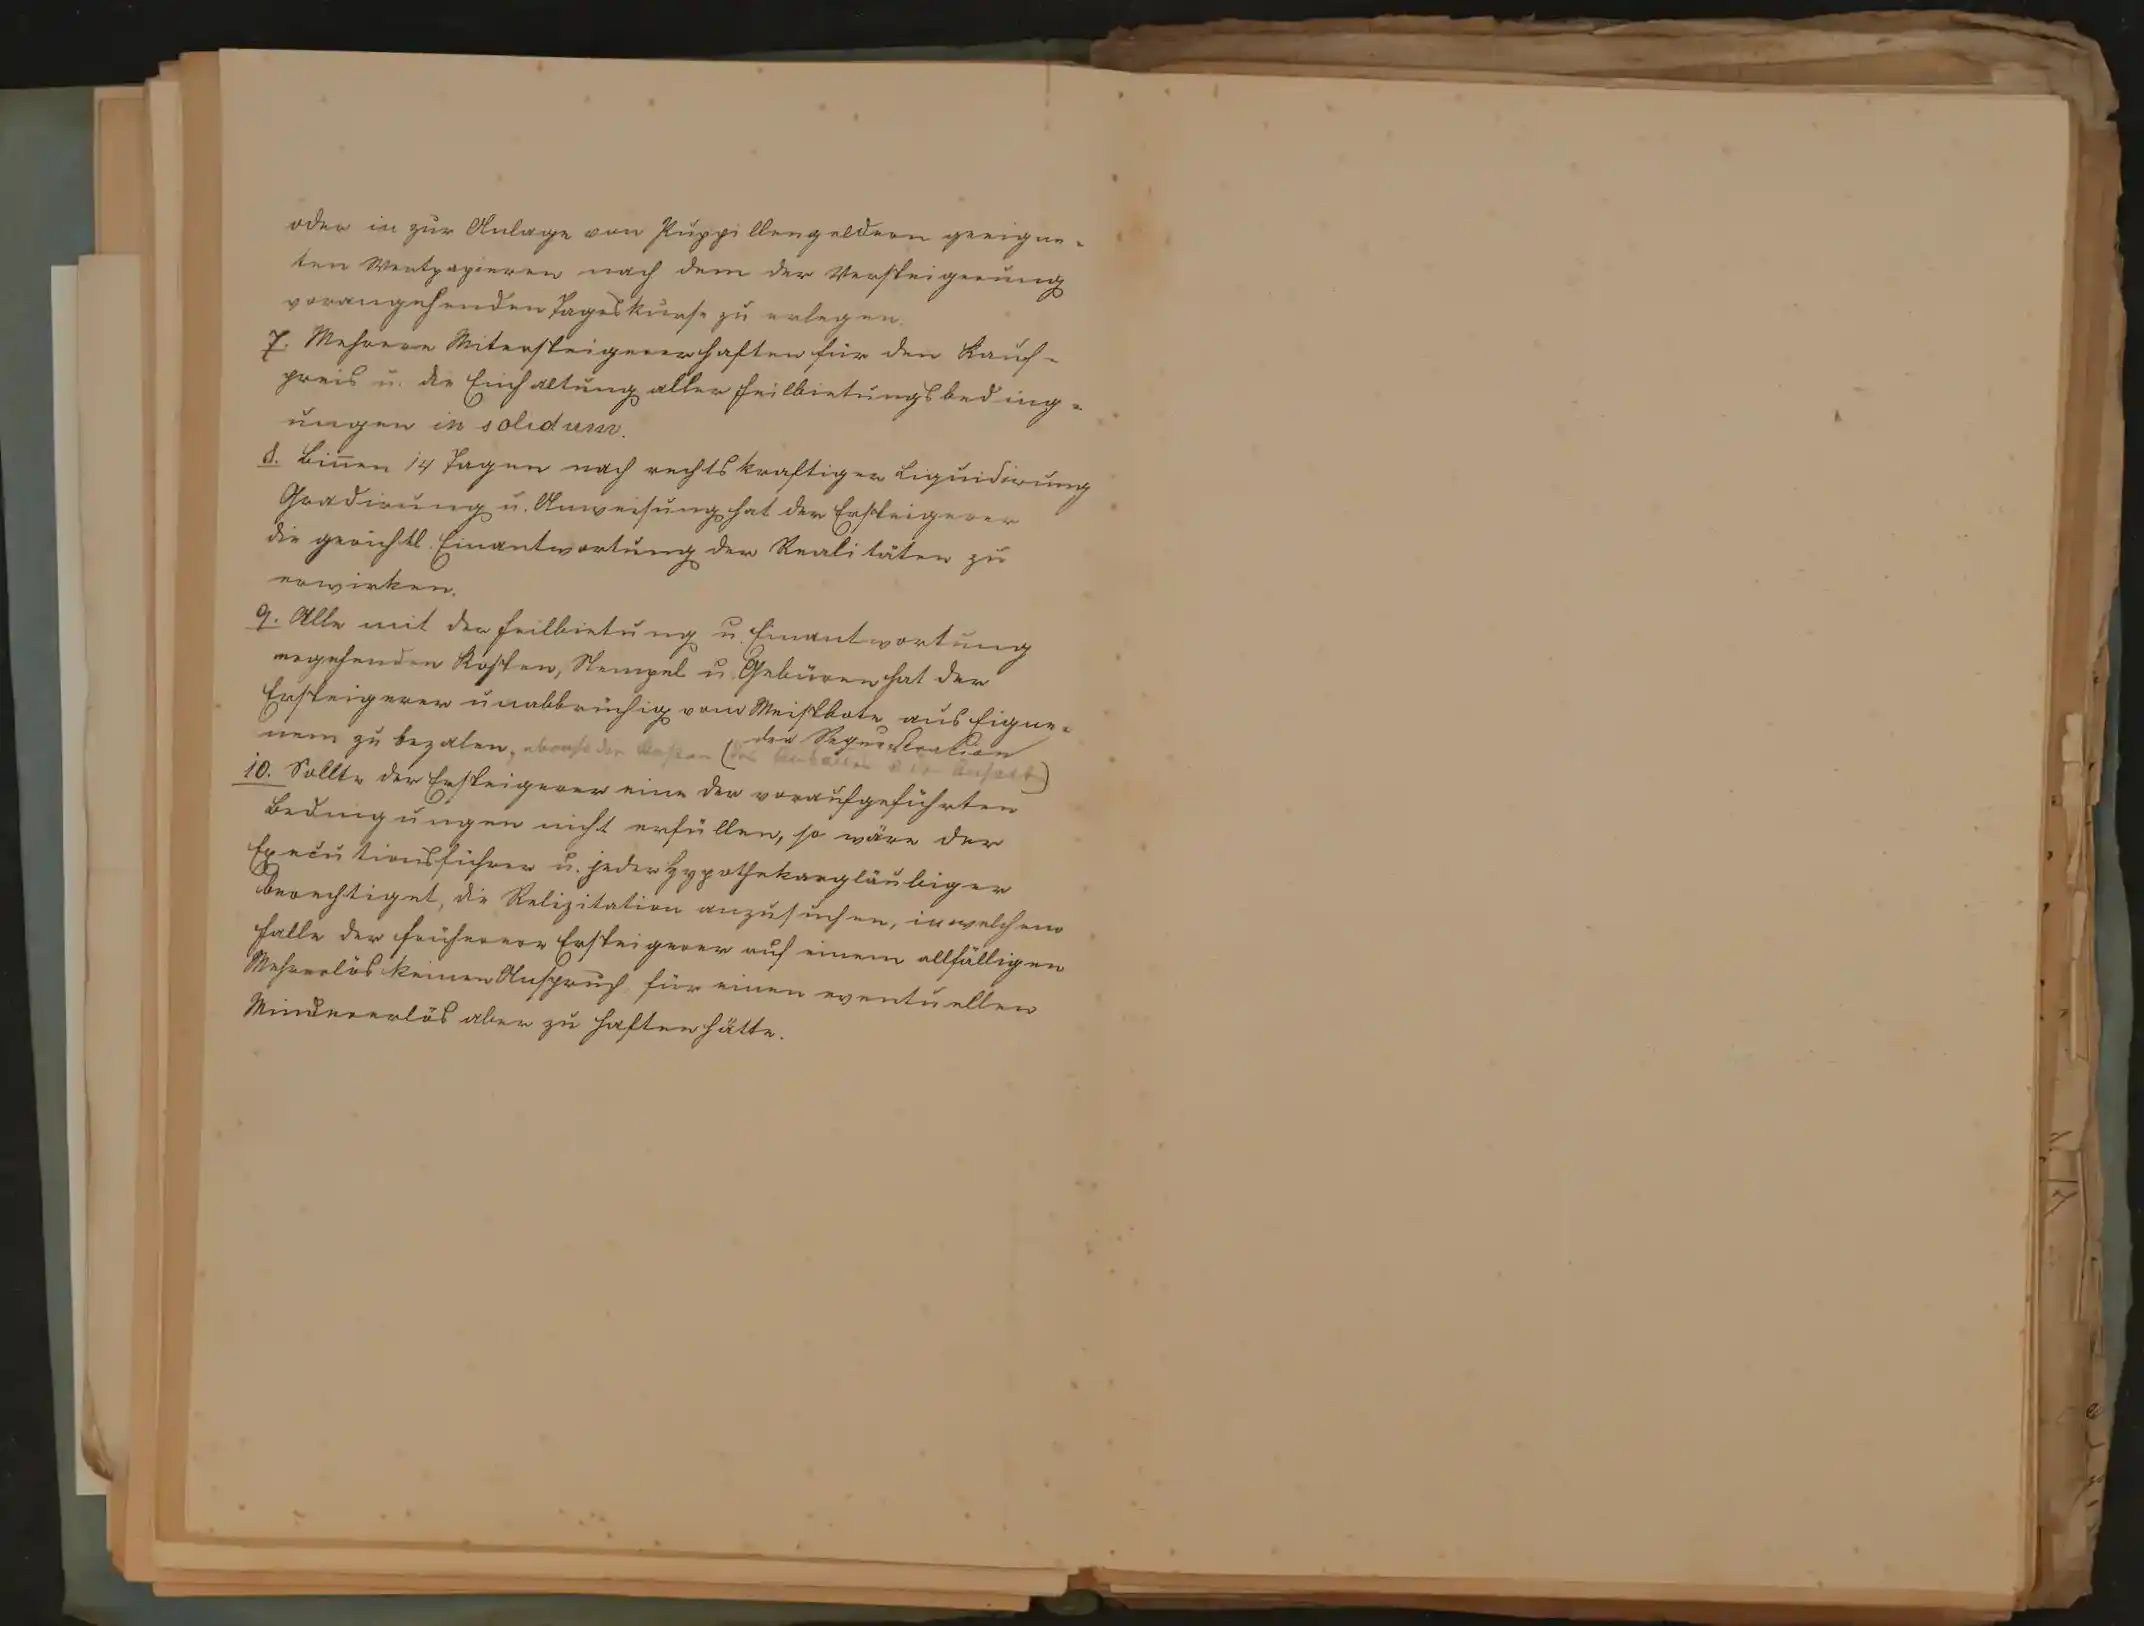 oder in zur Anlage von Puppillengeldern geeigne-
ten Wertpapieren nach dem der Versteigerung
vorangehenden Tageskurse zu erlegen.
7. Mehrere Mitersteigerer haften für den Kauf-
preis u. die Einhaltung aller Feilbietungsbeding-
ungen in solidum.
8. Binnen 14 Tagen nach rechtskraftiger Liquidirung
Gradirung u. Anweisung hat der Ersteigerer
die gerichtl. Einantwortung der Realitäten zu
erwirken.
9. Alle mit der Feilbietung u. Einantwortung
ergehenden Kosten, Stempel u. Gebüren hat der
Ersteigerer unabbrüchig vom Meistbote aus Eigne-
der Sequestration
nem zu bezalen, ebenso die Kosten
10. Sollte der Ersteigerer eine der voraufgeführten
Bedingungen nicht erfüllen, so wäre der
Executionsführer u. jeder Hypothekargläubiger
berechtiget, die Relizitation anzusuchen, in welchem
Falle der früherere Ersteigerer auf einem allfälligen
Mehrerlös keinen Anspruch für einen eventuellen
Mindererlös aber zu haften hätte.